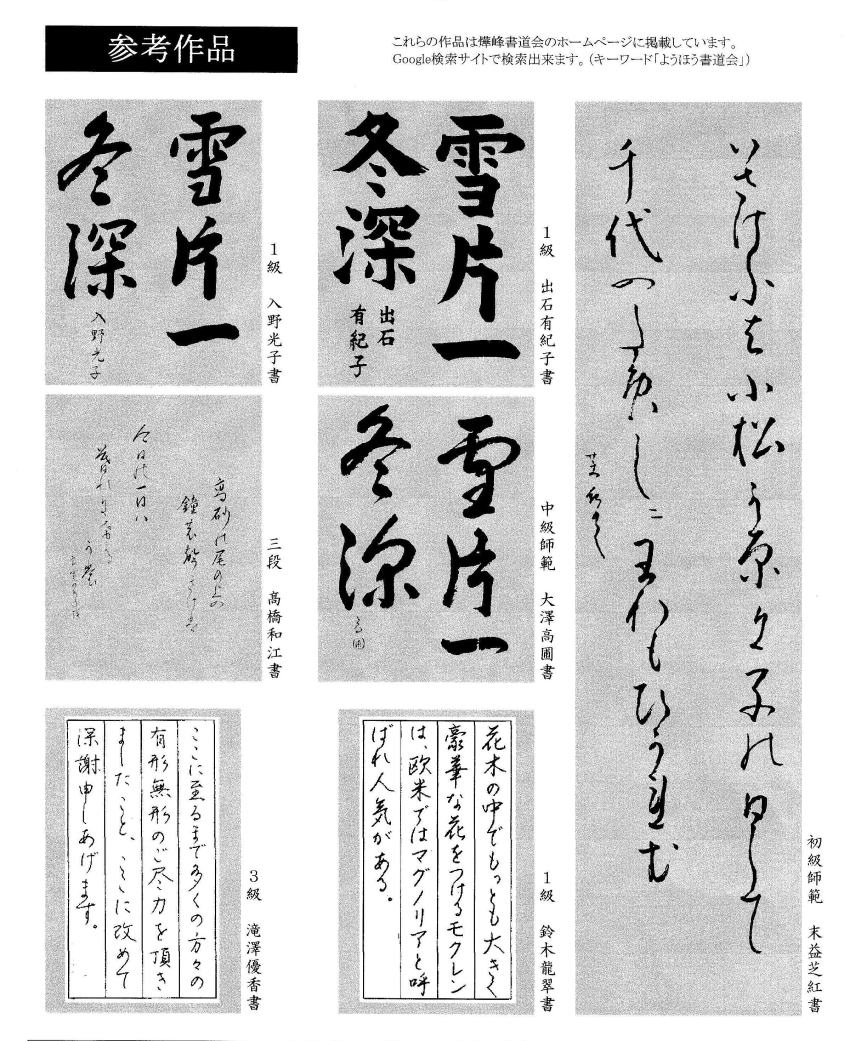 参考作品
これらの作品は燁峰書道会のホームページに掲載しています。
Google検索サイトで検索出来ます。(キーワード「ようほう書道会」)
雪片一
冬深
入野光子
1級 入野光子書
雪片一
冬深
出石
有紀子
1級 出石有紀子書
いさけふは小松か原に子の日して
千代のためしにわれも
初級師範 末益芝紅書
高砂の尾の上の
鐘
今日の一日は
三段 高橋和江書
雪片一
冬深
中級師範 大澤高圃書
ここに至るまで多くの方々の
有形無形のご尽力を頂き
ましたこと、ここに改めて
深謝申しあげます。
3級 滝澤優香書
花木の中でもっとも大きく
豪華な花をつけるモクレン
は、欧米ではマグノリアと呼
ばれ人気がある。
1級 鈴木龍翠書